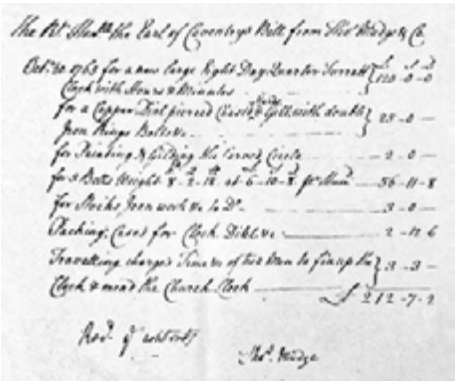 The Rt. Honble the Earl of Coventrys Bill from Thos Mudge & Co.
£ s d
Octr 20. 1763 for a new large Eight Day Quarter Turrett
Clock with Hours & Minutes } 120-0-0
for a Copper Dial pierced Circle & Gilt with double
Iron Rings Bolts &c } 25-0-
for Painting & Gilding the Circle 2-0-
for 3 Bells Weight 8-2-12 at 6-10-8 pr 56-11-8
for Stocks Iron work &c to Do 3-0-
Packing Cases for Clock Dial &c 2-12 6
Travelling charges Time &c of two Men to fix up the
Clock & mend the Church Clock } 3-3-
£ 212-7-2
Recd
Thos. Mudge